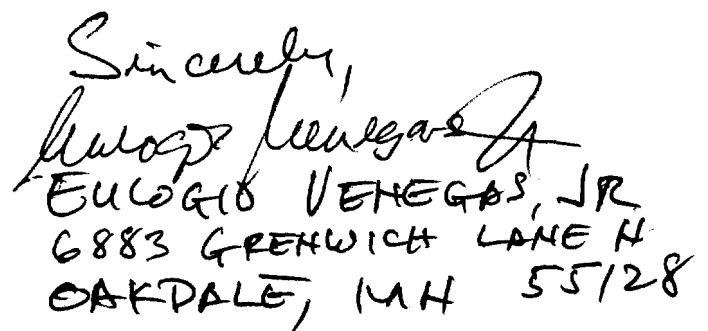 Sincerely,
Eulogio Venegas Jr
EULOGIO VENEGAS, JR
6883 GRENWICH LANE N
OAKDALE, MN 55128